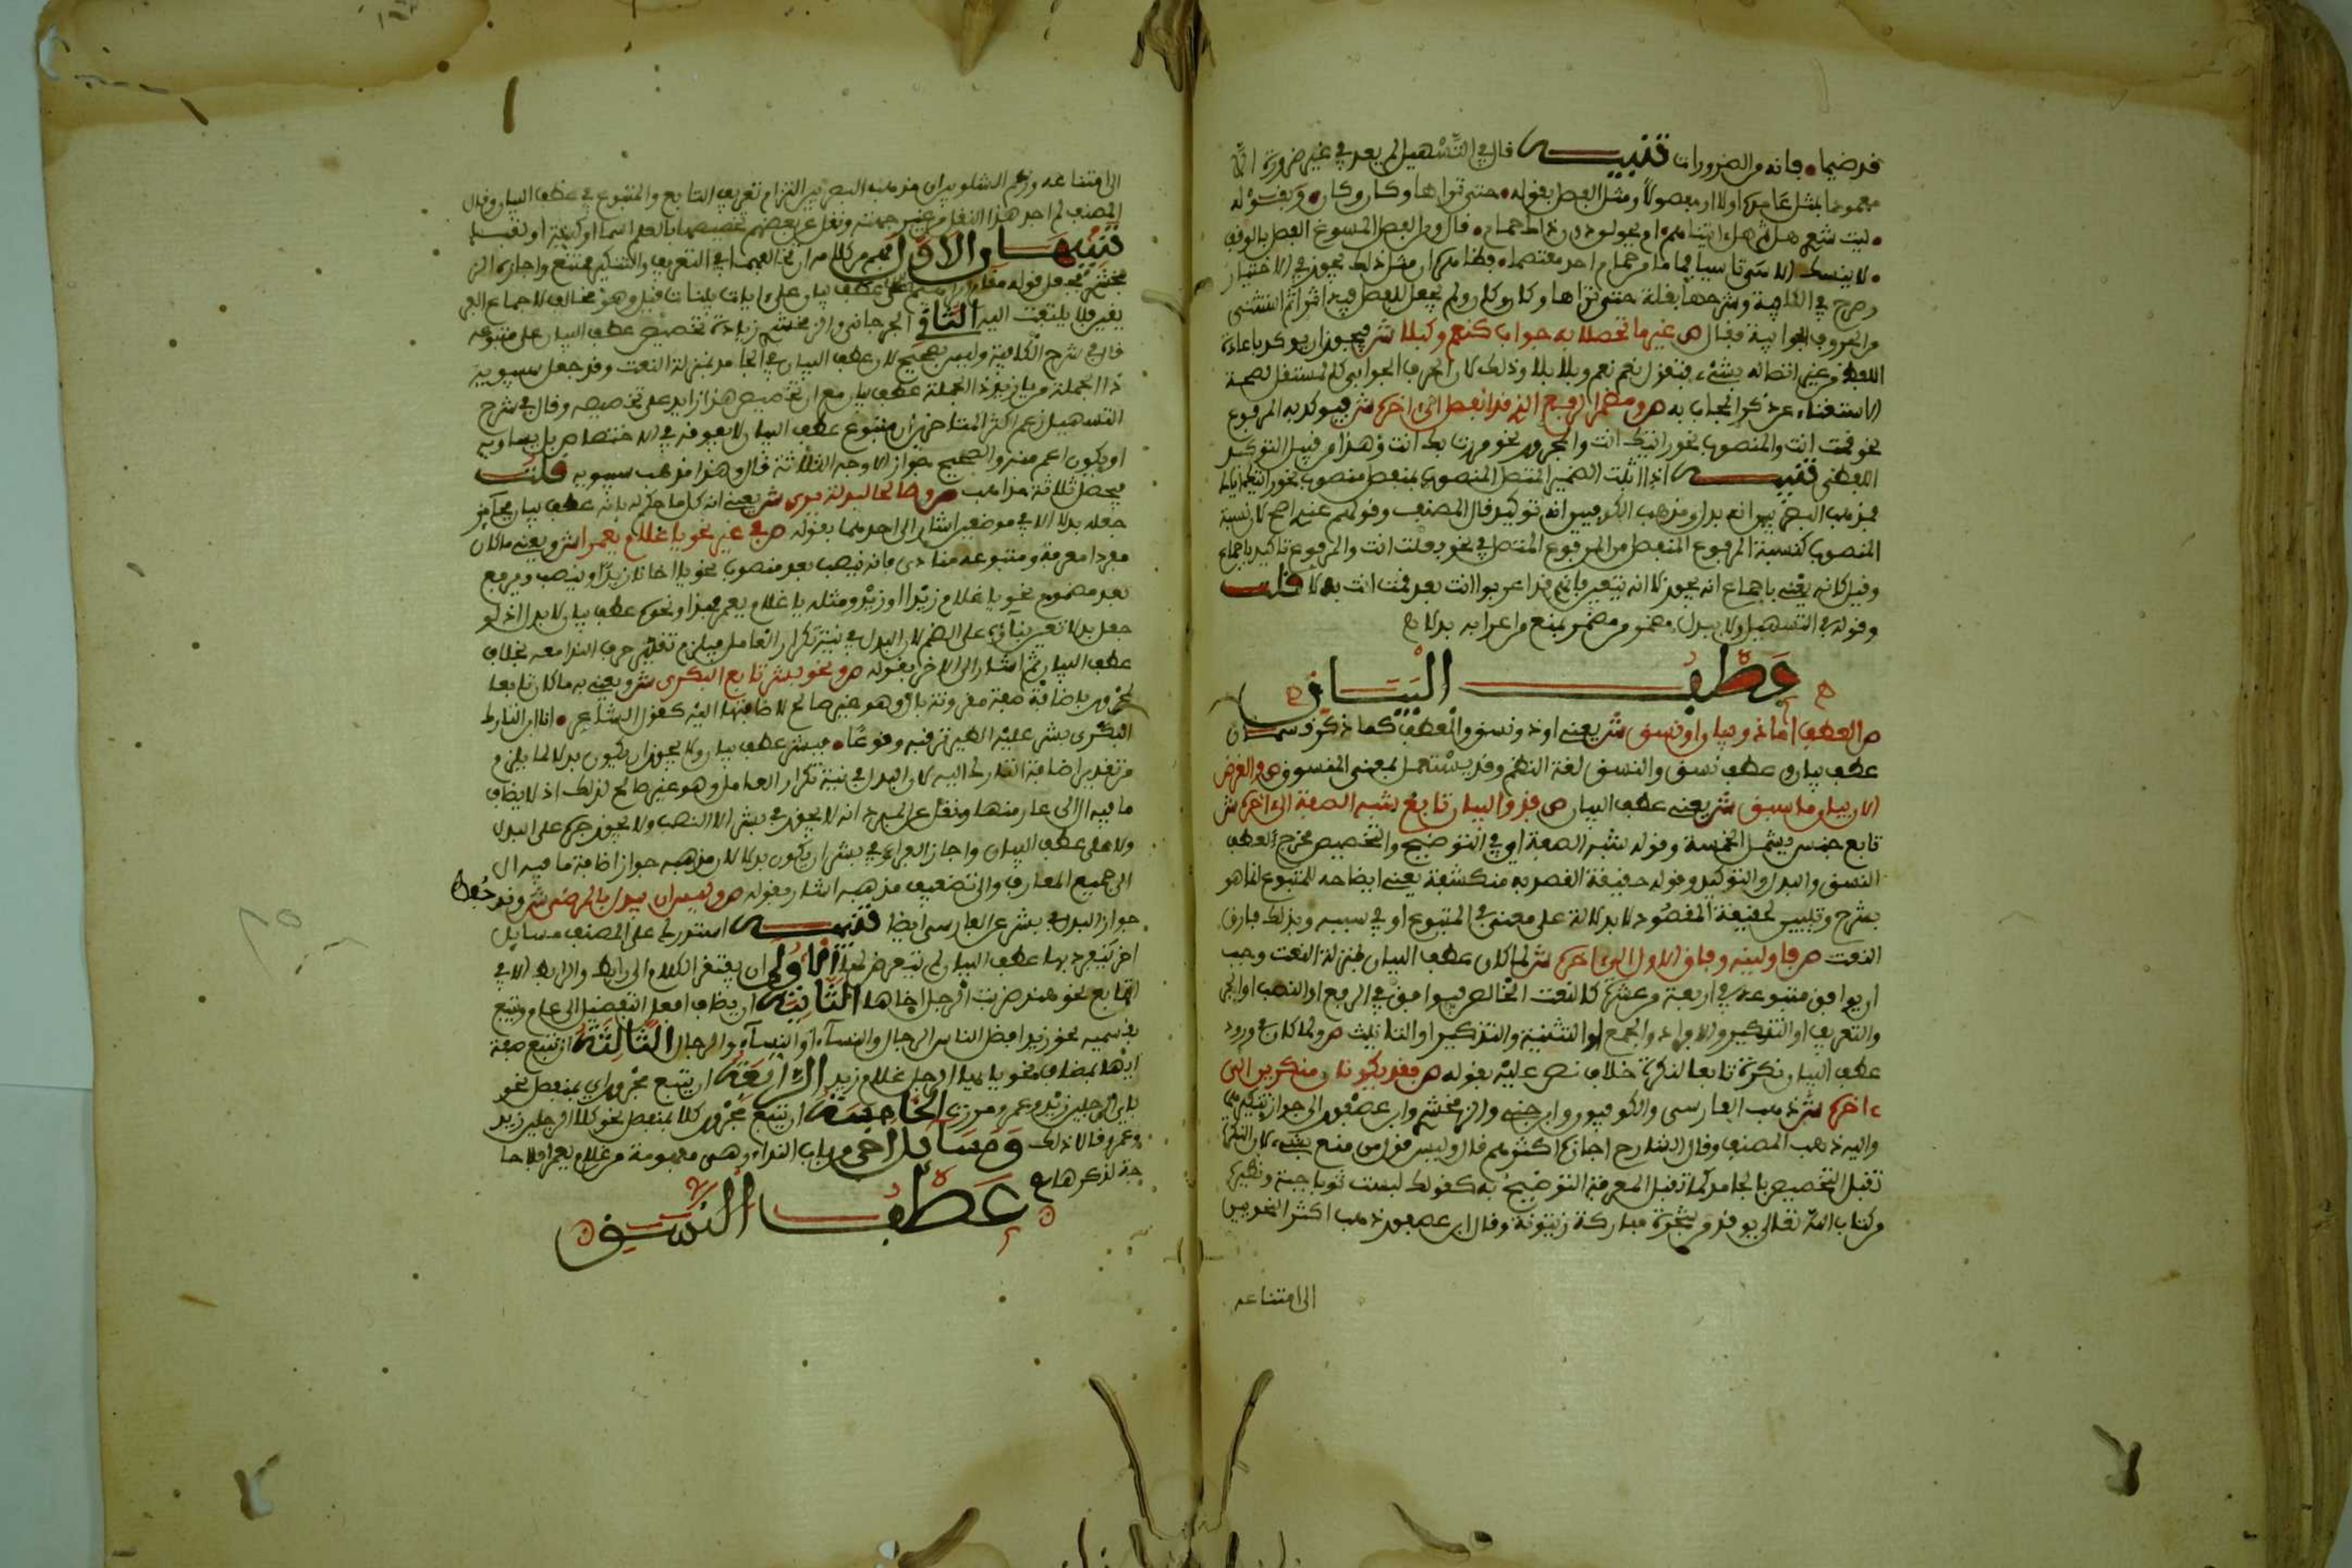 قد ضيما • فإنه من الضرورات تنبيه قال في التسهيل لم يعد في غير ضرورة إلا
معمودا بمثل عامله أولا أو مفصولا ومثل الفصل بقوله • حتى تراها وكأن وكأن • وبقوله
• ليت شعري هل ثم هل آتينهم • أم يحولن دون ذاك حمام • قال ومن الفصل المسوغ الفصل بالوقف
• لا ينسك الأسى تأسيا فما ما من حمام أحد معتصما •
وصرح في الكافية وشرحها بقلة حتى تراها وكأن وكأن ولم يجعل للفصل فيه أثرا ثم استثنى
من الحروف الجوابية فقال ص غير ما تحصلا به جواب كنعم وكبلى ش فيجوز أن يوكد بإعادة
اللفظ من غير اتصاله بشيء فتقول نعم نعم وبلى بلى وذلك لأن الحرف الجوابي كالمستقل لصحة
الاستغناء عن ذكر المجاب به ص ومضمر الرفع الذي قد انفصل إلى آخره ش فيوكد به المرفوع
نحو قمت أنت والمنصوب نحو رأيتك أنت والمجرور نحو مررت بك أنت وهذا من قبيل التوكيد
اللفظي تنبيه إذا أتبعت الضمير المتصل المنصوب بمنفصل منصوب نحو رأيتك إياك
فمذهب البصريين أنه بدل ومذهب الكوفيين أنه توكيد قال المصنف وقولهم عندي أصح لأن نسبة
المنصوب كنسبة المرفوع المنفصل من المرفوع المتصل في نحو فعلت أنت والمرفوع تاكيد بإجماع
وقيل كأنه يعني بإجماع أنه يجوز لا أنه يتعين فإنهم قد أعربوا أنت بعد قمت أنت بدلا قلت
وقوله في التسهيل ولا يبدل مضمر من مضمر يمنع من إعرابه بدلا
عطف البيان
ص العطف إما ذو بيان أو نسق ش يعني أو ذو نسق والعطف كما ذكر قسمان
عطف بيان وعطف نسق والنسق لغة النظم وقد يستعمل بمعنى المنسوق ص والغرض
الآن بيان ما سبق ش يعني عطف البيان ص فذو البيان تابع شبه الصفة إلى آخره ش
تابع جنس يشمل الخمسة وقوله شبه الصفة أي في التوضيح والتخصيص مخرج لعطف
النسق والبدل والتوكيد وقوله حقيقة القصد به منكشفة يعني إيضاحه للمتبوع إنما هو
بشرح وتبيين لحقيقة المقصود لا بدلالة على معنى في المتبوع أو في سببه وبذلك فارق
النعت ص فأولينه وفاق الأول إلى آخره ش لما كان عطف البيان بمنزلة النعت وجب
أن يوافق متبوعه في أربعة من عشرة كالنعت الخالص فيوافق في الرفع أو النصب أو الجر
والتعريف أو التنكير والإفراد والجمع أو التثنية والتذكير أو التانيث ص ولما كان في ورود
عطف البيان نكرة تابعا لنكرة خلاف نص عليه بقوله ص فقد يكونان منكرين إلى
آخره ش ذهب الفارسي والكوفيون وابن جني والزمخشري وابن عصفور إلى جواز تنكيرهما
وإليه ذهب المصنف وقال الشارح أجازه أكثرهم قال وليس قول من منع بشيء لأن النكرة
تقبل التخصيص بالجامد كما تقبل المعرفة التوضيح به كقولك لبست ثوبا جبة ونظيره
من كتاب الله تعالى يوقد من شجرة مباركة زيتونة وقال ابن عصفور ذهب أكثر النحويين
إلى امتناعه
إلى امتناعه وزعم الشلوبين أن مذهب البصريين التزام تعريف التابع والمتبوع في عطف البيان وقال
المصنف لم أجد هذا النقل من غير جهته ونقل عن بعضهم تخصيصها بالعلم اسما أو كنية أو لقبا
تنبيهان الأول فهم من كلامه أن تخالفهما في التعريف والتنكير ممتنع وأجازه الز
مخشري فجعل قوله مقام إبراهيم عطف بيان على آيات بينات قيل وهو مخالف لإجماع البصر
يين فلا يلتفت إليه الثاني الجرجاني والزمخشري زيادة تخصيص عطف البيان على متبوعه
قال في شرح الكافية وليس بصحيح لأن عطف البيان في الجامد بمنزلة النعت وقد جعل سيبويه
ذا الجملة من يا زيد ذا الجملة عطف بيان مع أن تخصيص هذا زايد على تخصيصه وقال في شرح
التسهيل زعم أكثر المتأخرين أن متبوع عطف البيان لا يفوقه في الاختصاص بل يساويه
أو يكون أعم منه والصحيح جواز الأوجه الثلاثة قال وهذا مذهب سيبويه قلت
فيحصل ثلاثة مذاهب ص وصالحا لبدلية يرى ش يعني أن كل ما حكم له بأنه عطف بيان فجائز
جعله بدلا إلا في موضعين أشار إلى أحدهما بقوله ص في غير نحو يا غلام يعمرا ش ويعني ما كان
مفردا معرفة ومتبوعه منادى فإنه ينصب بعد منصوب نحو يا أخانا زيدا وينصب ويرفع
بعد مضموم نحو يا غلام زيدا أو زيد ومثله يا غلام يعمر فيعمر ونحوه عطف بيان لا بدل إذ لو
جعل بدلا تعين بناؤه على الضم لأن البدل في نية تكرار العامل فيلزم تقدير حرف النداء معه بخلاف
عطف البيان ثم أشار إلى الآخر بقوله ص ونحو بشر تابع البكري ش ويعني به ما كان تابعا
لمجرور بإضافة صفة مقرونة بأل وهو غير صالح لإضافتها إليه كقول الشاعر • أنا ابن التارك
البكري بشر عليه الطير ترقبه وقوعا • فبشر عطف بيان ولا يجوز أن يكون بدلا لما يلزم
من تقدير إضافة التارك إليه لأن البدل في نية تكرار العامل وهو غير صالح لذلك إذ لا يضاف
ما فيه ال إلى عار منها ونقل عن المبرد أنه لا يجوز في بشر إلا النصب ولا يجوز جره على البدل
ولا على عطف البيان وأجاز الفراء في بشر أن يكون بدلا لأن مذهبه جواز إضافة ما فيه ال
إلى جميع المعارف وإلى تضعيف مذهبه أشار بقوله ص وليس أن يبدل بالمرضي ش وقد نقل
جواز البدل في بشر عن الفارسي أيضا تنبيه استدرك على المصنف مسايل
أخر يتعين بها عطف البيان لم يتعرض لها الأولى أن يفتقر الكلام إلى رابط والرابط إلا في
التابع نحو هند ضربت الرجل أخاها الثانية أن يضاف أفعل التفضيل إلى عام ويتبع
بقسميه نحو زيد أفضل الناس الرجال والنساء أو النساء والرجال الثالثة أن تتبع صفة
أيها بمضاف نحو يا أيها الرجل غلام زيد الرابعة أن يتبع مجرور أي بمفصل نحو
بأي الرجلين زيد وعمرو مررت الخامسة أن يتبع مجرور كلا بمفصل نحو كلا الرجلين زيد
وعمرو قال ذلك ومسائل أخر من باب النداء وهي مفهومة من غلام يعمر فلا حا
جة لذكرها
عطف النسق